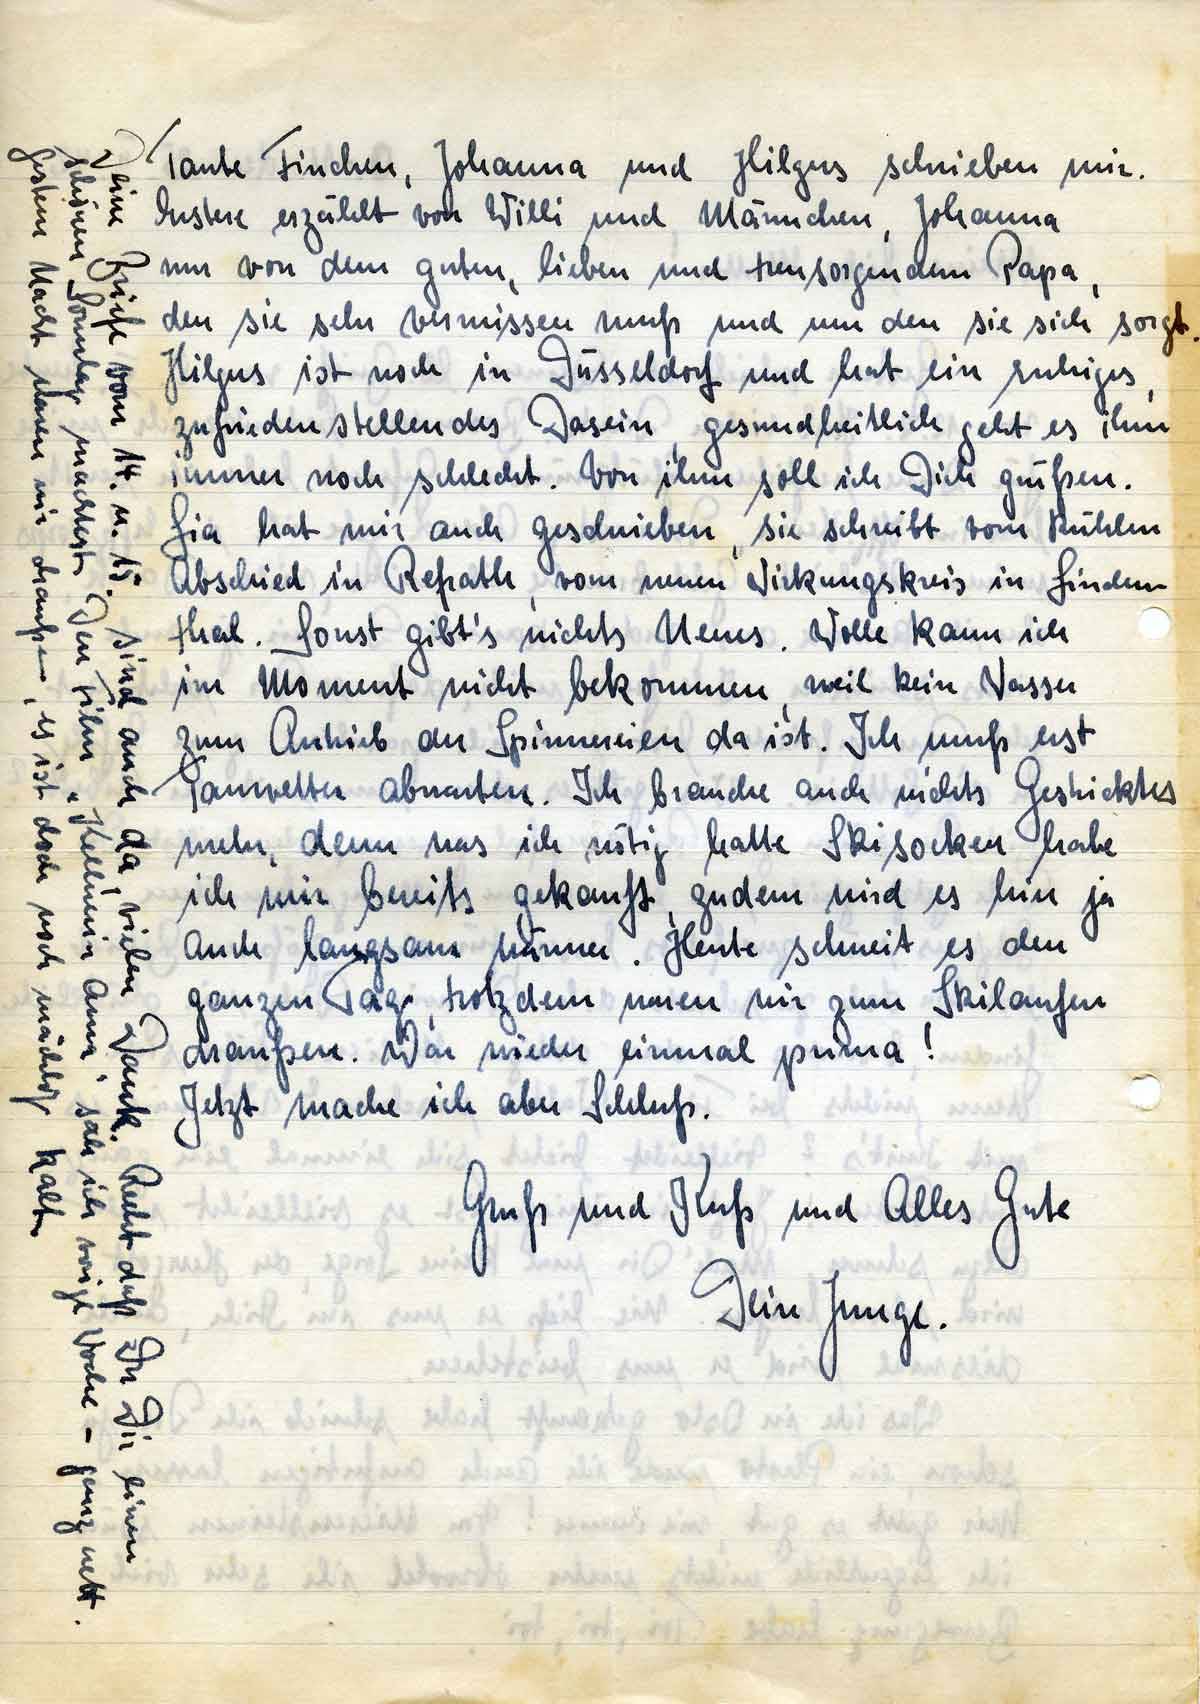 Tante Finchen, Johanna und Hilgers schrieben mir.
Erstere erzählt von Willi und Männchen, Johanna
nur von dem guten, lieben und treusorgendem Papa,
den sie sehr vermissen muß und um den sie sich sorgt.
Hilgers ist noch in Düsseldorf und hat ein ruhiges,
zufriedenstellendes Dasein, gesundheitlich geht es ihm
immer noch schlecht. Von ihm soll ich Dich grüßen.
Lia hat mir auch geschrieben, sie schreibt vom kühlen
Abschied in Refrath, vom neuen Wirkungskreis in Linden-
thal. Sonst gibt's nichts Neues. Wolle kann ich
im Moment nicht bekommen, weil kein Wasser
zum Antrieb der Spinnereien da ist. Ich muß erst
Tauwetter abwarten. Ich brauche auch nichts Gestricktes
mehr, denn was ich nötig hatte Skisocken habe
ich mir bereits gekauft, zudem wird es hier ja
auch langsam wärmer. Heute schneit es den
ganzen Tag, trotzdem waren wir zum Skilaufen
draußen. War wieder einmal prima!
Jetzt mache ich aber Schluß.
Gruß und Kuß und Alles Gute
Dein Junge.
Deine Briefe vom 14. u. 15. sind auch da, vielen Dank. Recht daß Du Dir einen
schönen Sonntag machtest. Den Film „Kellnerin Anna" sah ich vorige Woche – ganz nett.
Gestern Nacht waren wir draußen, es ist doch noch mächtig kalt.